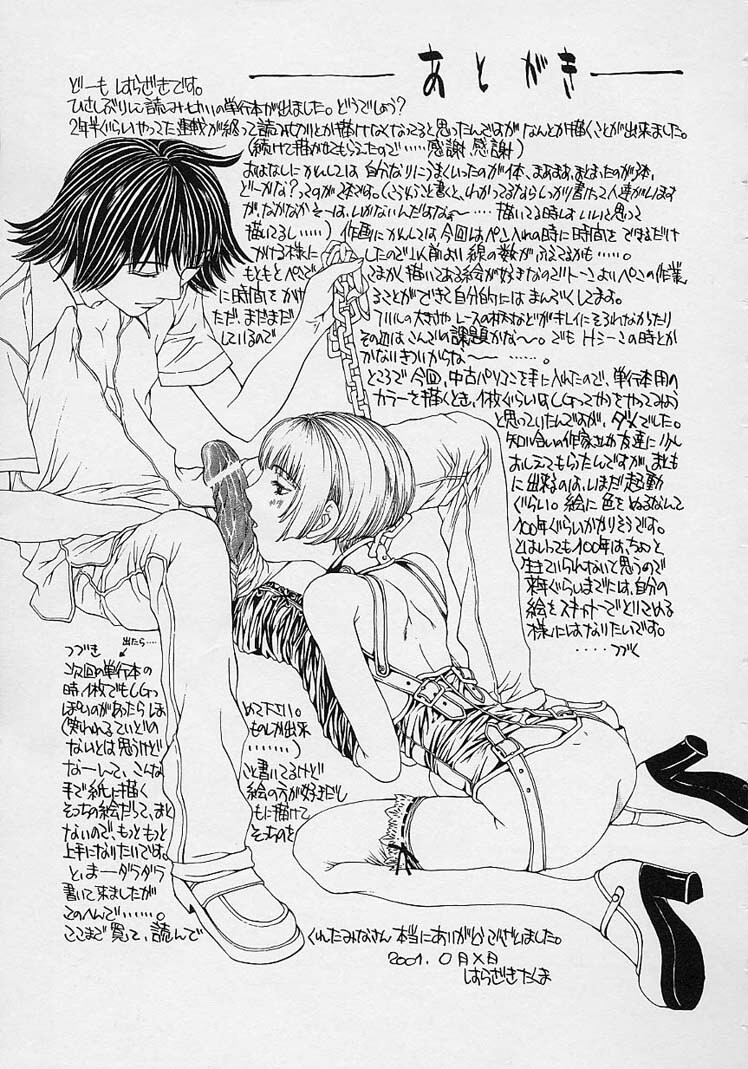 あとがき
どーも はらざきです。
ひさしぶりに読みせいの単行本が出ました。どうでしょう？
2年半ぐらいやってた連載が終って読みせいとか描けなくなってると思ったんですがなんとか描くことが出来ました。
(続けて描かせてもらえたので……感謝、感謝)
おはなしにかんしては 自分なりにうまくいったのが1本、まあまあ、まとまったのが3本、
どーかな？ってのが
描いてるし……) 作画にかんしては 今回はペン入れの時に時間を できるだけ
かける様に したので以前より線の数が ふえてるかも……。
もともとペンで こまかく描いてある絵が好きなのでトーンよりペンの作業
に時間をかけ ることができて自分的には まんぞくしてます。
ただ、まだまだ
しているので その辺は こんごの課題かな〜。でも Hシーンの時とか
かなりきついからな〜 ……。
ところで今回、中古パソコンを手に入れたので、単行本用の
カラーを描くとき、1枚ぐらいはCGってやつをやってみよう
と思っていたんですが、ダメでした。
知り合いの作家さんや友達に少し
おしえてもらったんですが、まとも
に出来るのは、いまだ起動
ぐらい。絵に色をぬるなんて
100年ぐらいかかりそうです。
とはいっても100年は、ちょっと
生きていられないと思うので
来年ぐらいまでには、自分の
絵をスキャナーでとりこめる
様にはなりたいです。
……つづく
つづき
出たら……
次回の単行本の
時、1枚でもCGっ
ぽいのがあったらほ
めて下さい。
(笑われるていどの
ものしか出来
ないとは思うけど
……)
なーんて、こんな
こと書いてるけど
手で紙に描く
絵の方が好きだし
そっちの絵だって、まと
もに描けて
ないので、もっともっと
そっちのを
上手になりたいです。
と、まーダラダラ
書いて来ましたが
このへんで……。
ここまで見て、読んで くれたみなさん 本当にありがとうございました。
2001. ○月×日
はらざきたくま